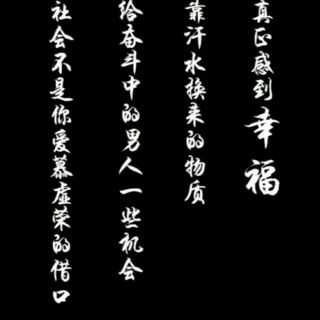 社会不是你爱慕虚荣的借口
给奋斗中的男人一些机会
靠汗水换来的物质
真正感到幸福